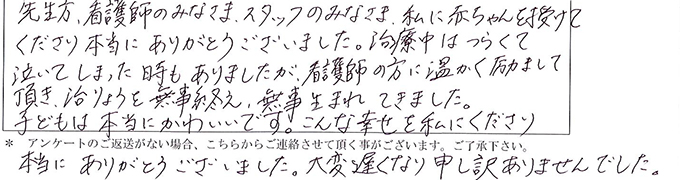 先生方、看護師のみなさま、スタッフのみなさま、私に赤ちゃんを授けて
くださり本当にありがとうございました。治療中はつらくて
泣いてしまった時もありましたが、看護師の方に温かく励まして
頂き、治りょうを無事終え、無事生まれてきました。
子どもは本当にかわいいです。こんな幸せを私にくださり
* アンケートのご返送がない場合、こちらからご連絡させて頂く事がございます。ご了承下さい。
本当にありがとうございました。大変遅くなり申し訳ありませんでした。